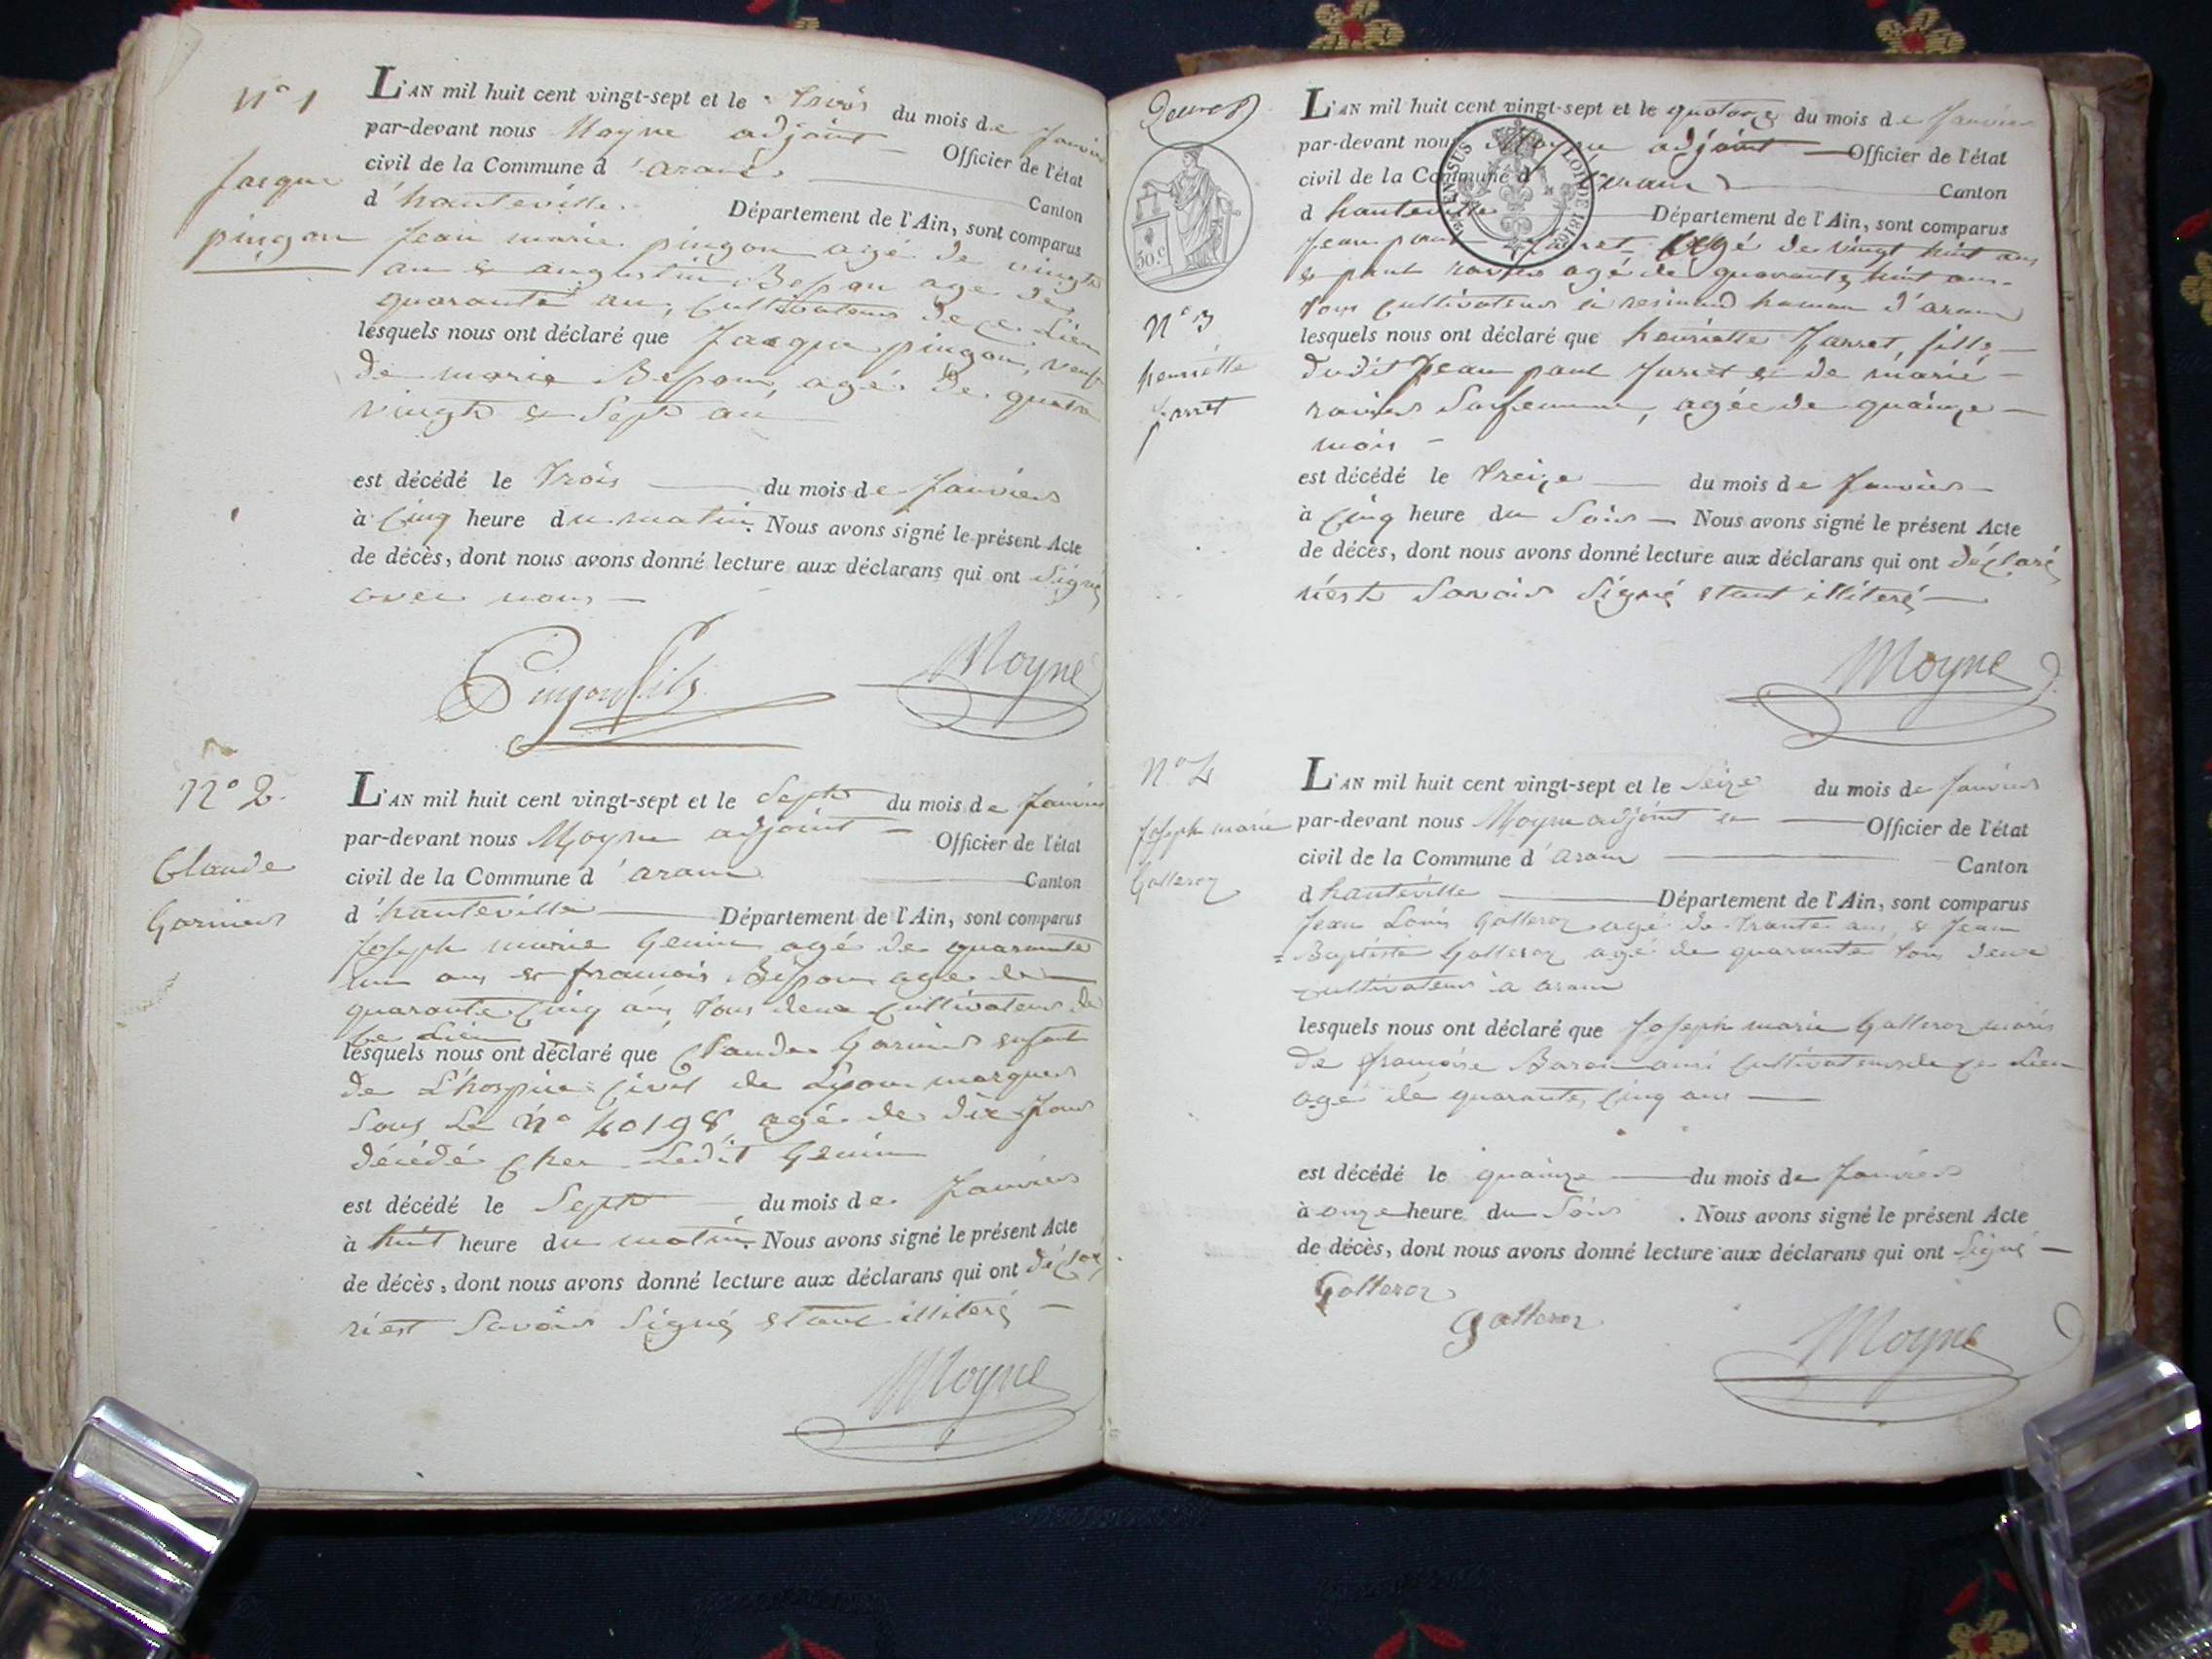 N° 1
Jacque
pingon
L'AN mil huit cent vingt-sept et le trois du mois de Janvier
par-devant nous Moyne adjoint Officier de l'état
civil de la Commune d'aranc Canton
d'hauteville. Département de l'Ain, sont comparus
Jean marie pingon agé de vingt
an & augustin Bespon age de
quarante an, Cultivateurs de ce Lieu
lesquels nous ont déclaré que Jacque pingon, veuf
de marie Bespon, agé de quatre
vingt & Sept an
est décédé le trois du mois de Janviers
à Cinq heure du matin. Nous avons signé le présent Acte
de décès, dont nous avons donné lecture aux déclarans qui ont Signé
avec nous
Pingon fils
Moyne
N° 2.
Claude
Garniers
L'AN mil huit cent vingt-sept et le Sept du mois de Janvier
par-devant nous Moyne adjoint Officier de l'état
civil de la Commune d'aranc Canton
d'hauteville Département de l'Ain, sont comparus
Joseph marie Genin agé de quarante
un ans & francois Bespon age de
quarante Cinq ans tous deux Cultivateurs de
Ce Lieu
lesquels nous ont déclaré que Claude Garniers enfant
de L'hospice Civil de Lyon marques
Sous Le n° 40198 agé de dix Jours
décédé Chez Ledit Genin
est décédé le Sept du mois de Janviers
à huit heure du matin. Nous avons signé le présent Acte
de décès, dont nous avons donné lecture aux déclarans qui ont déclaré
n'est Savoir Signé etant illiteré
Moyne
30.C
N° 3
henriette
Jarret
L'AN mil huit cent vingt-sept et le quatorze du mois de Janvier
par-devant nous Moyne adjoint Officier de l'état
civil de la Commune d'aranc Canton
d hauteville Département de l'Ain, sont comparus
Jean paul Jarret agé de vingt huit ans
& paul agé de quarante huit ans
tous Cultivateurs à resinand hameau d'aranc
lesquels nous ont déclaré que henriette Jarret, fille
dudit Jean paul Jarret & de marie
Safemme, agée de quainze
mois
est décédé le treize du mois de Janvier
à Cinq heure du Soir Nous avons signé le présent Acte
de décès, dont nous avons donné lecture aux déclarans qui ont déclaré
n'est Savoir Signé etant illiteré
Moyne
N° 4
Joseph marie
Galleroz
L'AN mil huit cent vingt-sept et le Seize du mois de Janviers
par-devant nous Moyne adjoint Officier de l'état
civil de la Commune d'aranc Canton
d hauteville Département de l'Ain, sont comparus
Jean Louis Galleroz agé de trante ans, & Jean
Baptiste Galleroz agé de quarante tous deux
cultivateurs à aranc
lesquels nous ont déclaré que Joseph marie Galleroz maris
de françoise cultivateurs de ce Lieu
agé de quarante, Cinq ans
est décédé le quainze du mois de Janviers
à onze heure du Soir. Nous avons signé le présent Acte
de décès, dont nous avons donné lecture aux déclarans qui ont Signé
Galleroz
galleroz
Moyne